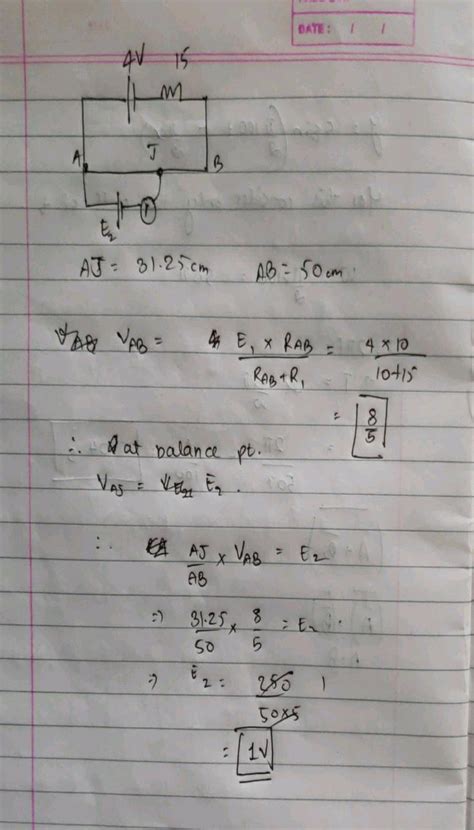 DATE: / /
4V 15
A J B
E₂
AJ = 31.25cm AB = 50cm.
V_AB = E₁ × R_AB / R_AB + R₁ = 4 × 10 / 10+15
= 8/5
∴ at balance pt.
V_AJ = E₂.
∴ AJ/AB × V_AB = E₂
⇒ 31.25/50 × 8/5 = E₂
⇒ E₂ = 250/50×5 1
= 1V